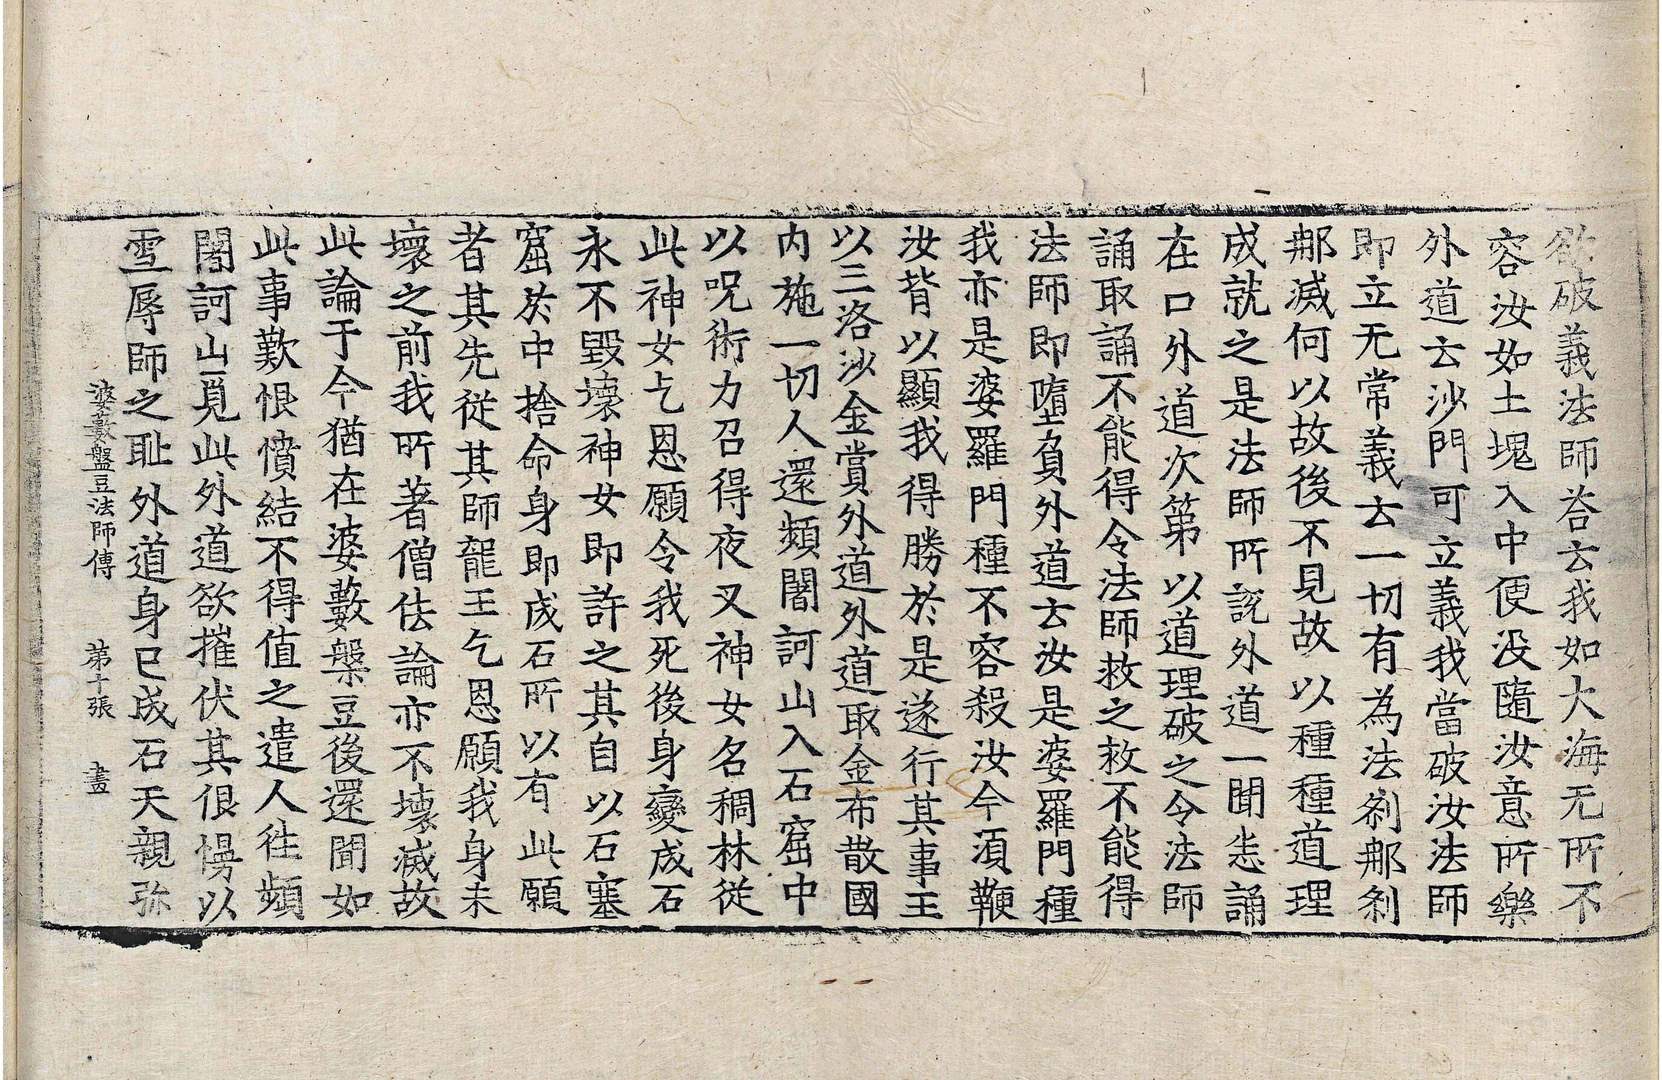 欲破義法師荅云我如大海无所不
容汝如土塊入中便没隨汝意所樂
外道云沙門可立義我當破汝法師
即立无常義云一切有為法刹那刹
那滅何以故後不見故以種種道理
成就之是法師所説外道一聞悉誦
在口外道次第以道理破之令法師
誦取誦不能得令法師救之救不能得
法師即墮負外道云汝是婆羅門種
我亦是婆羅門種不容殺汝今須鞭
汝背以顯我得勝於是遂行其事王
以三洛沙金賞外道外道取金布散國
内施一切人還頻闍訶山入石窟中
以呪術力召得夜叉神女名稠林從
此神女乞恩願令我死後身變成石
永不毀壞神女即許之其自以石塞
窟於中捨命身即成石所以有此願
者其先從其師龍王乞恩願我身未
壞之前我所著僧佉論亦不壞滅故
此論于今猶在婆藪槃豆後還聞如
此事歎恨憤結不得值之遣人往頻
闍訶山覓此外道欲摧伏其很慢以
雪辱師之恥外道身已成石天親弥
婆藪盤豆法師傳 第十張 畫